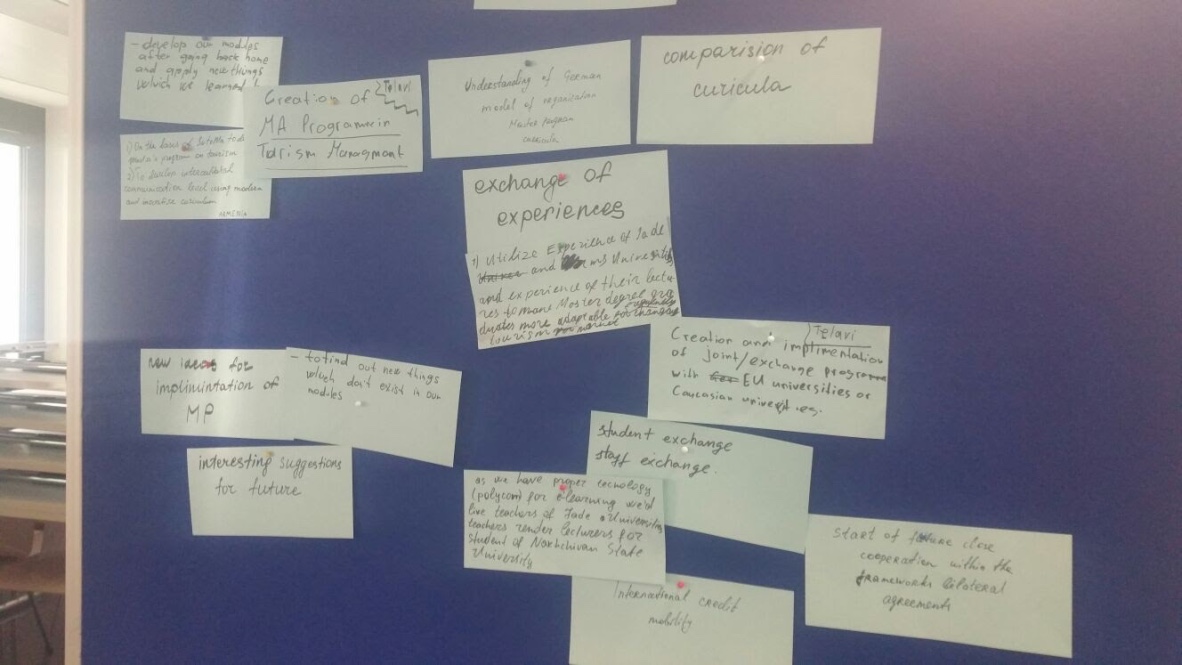 - develop our modules
after going back home
and apply new things
which we learned
Creation of
Telavi
MA Programme in
Tourism Managment
1) On the basis of
program on tourism
2) To develop intercultural
communication level using modern
and inovative curiculum
Understanding of German
model of organisation
Master program
curricula
comparision of
curicula
exchange of
experiences
1) Utilize Experience of Jade
and Universities
and experience of their lectu
res to make Master degree gra
duates more adaptable for changing
tourism market
Telavi
Creation and implimentation
of joint/exchange programm
with EU universities or
Caucasian universities.
new ideas for
implimintation of
MP
- to find out new things
which don't exist in our
modules
interesting suggestions
for future
student exchange
staff exchange.
as we have proper tecnology
(polycom) for e-learning we'd
like teachers of Jade University
teachers render lecturers for
student of Nakhchivan State
University
International credit
mobility
start of future close
cooperation within the
frameworks bilateral
agreements